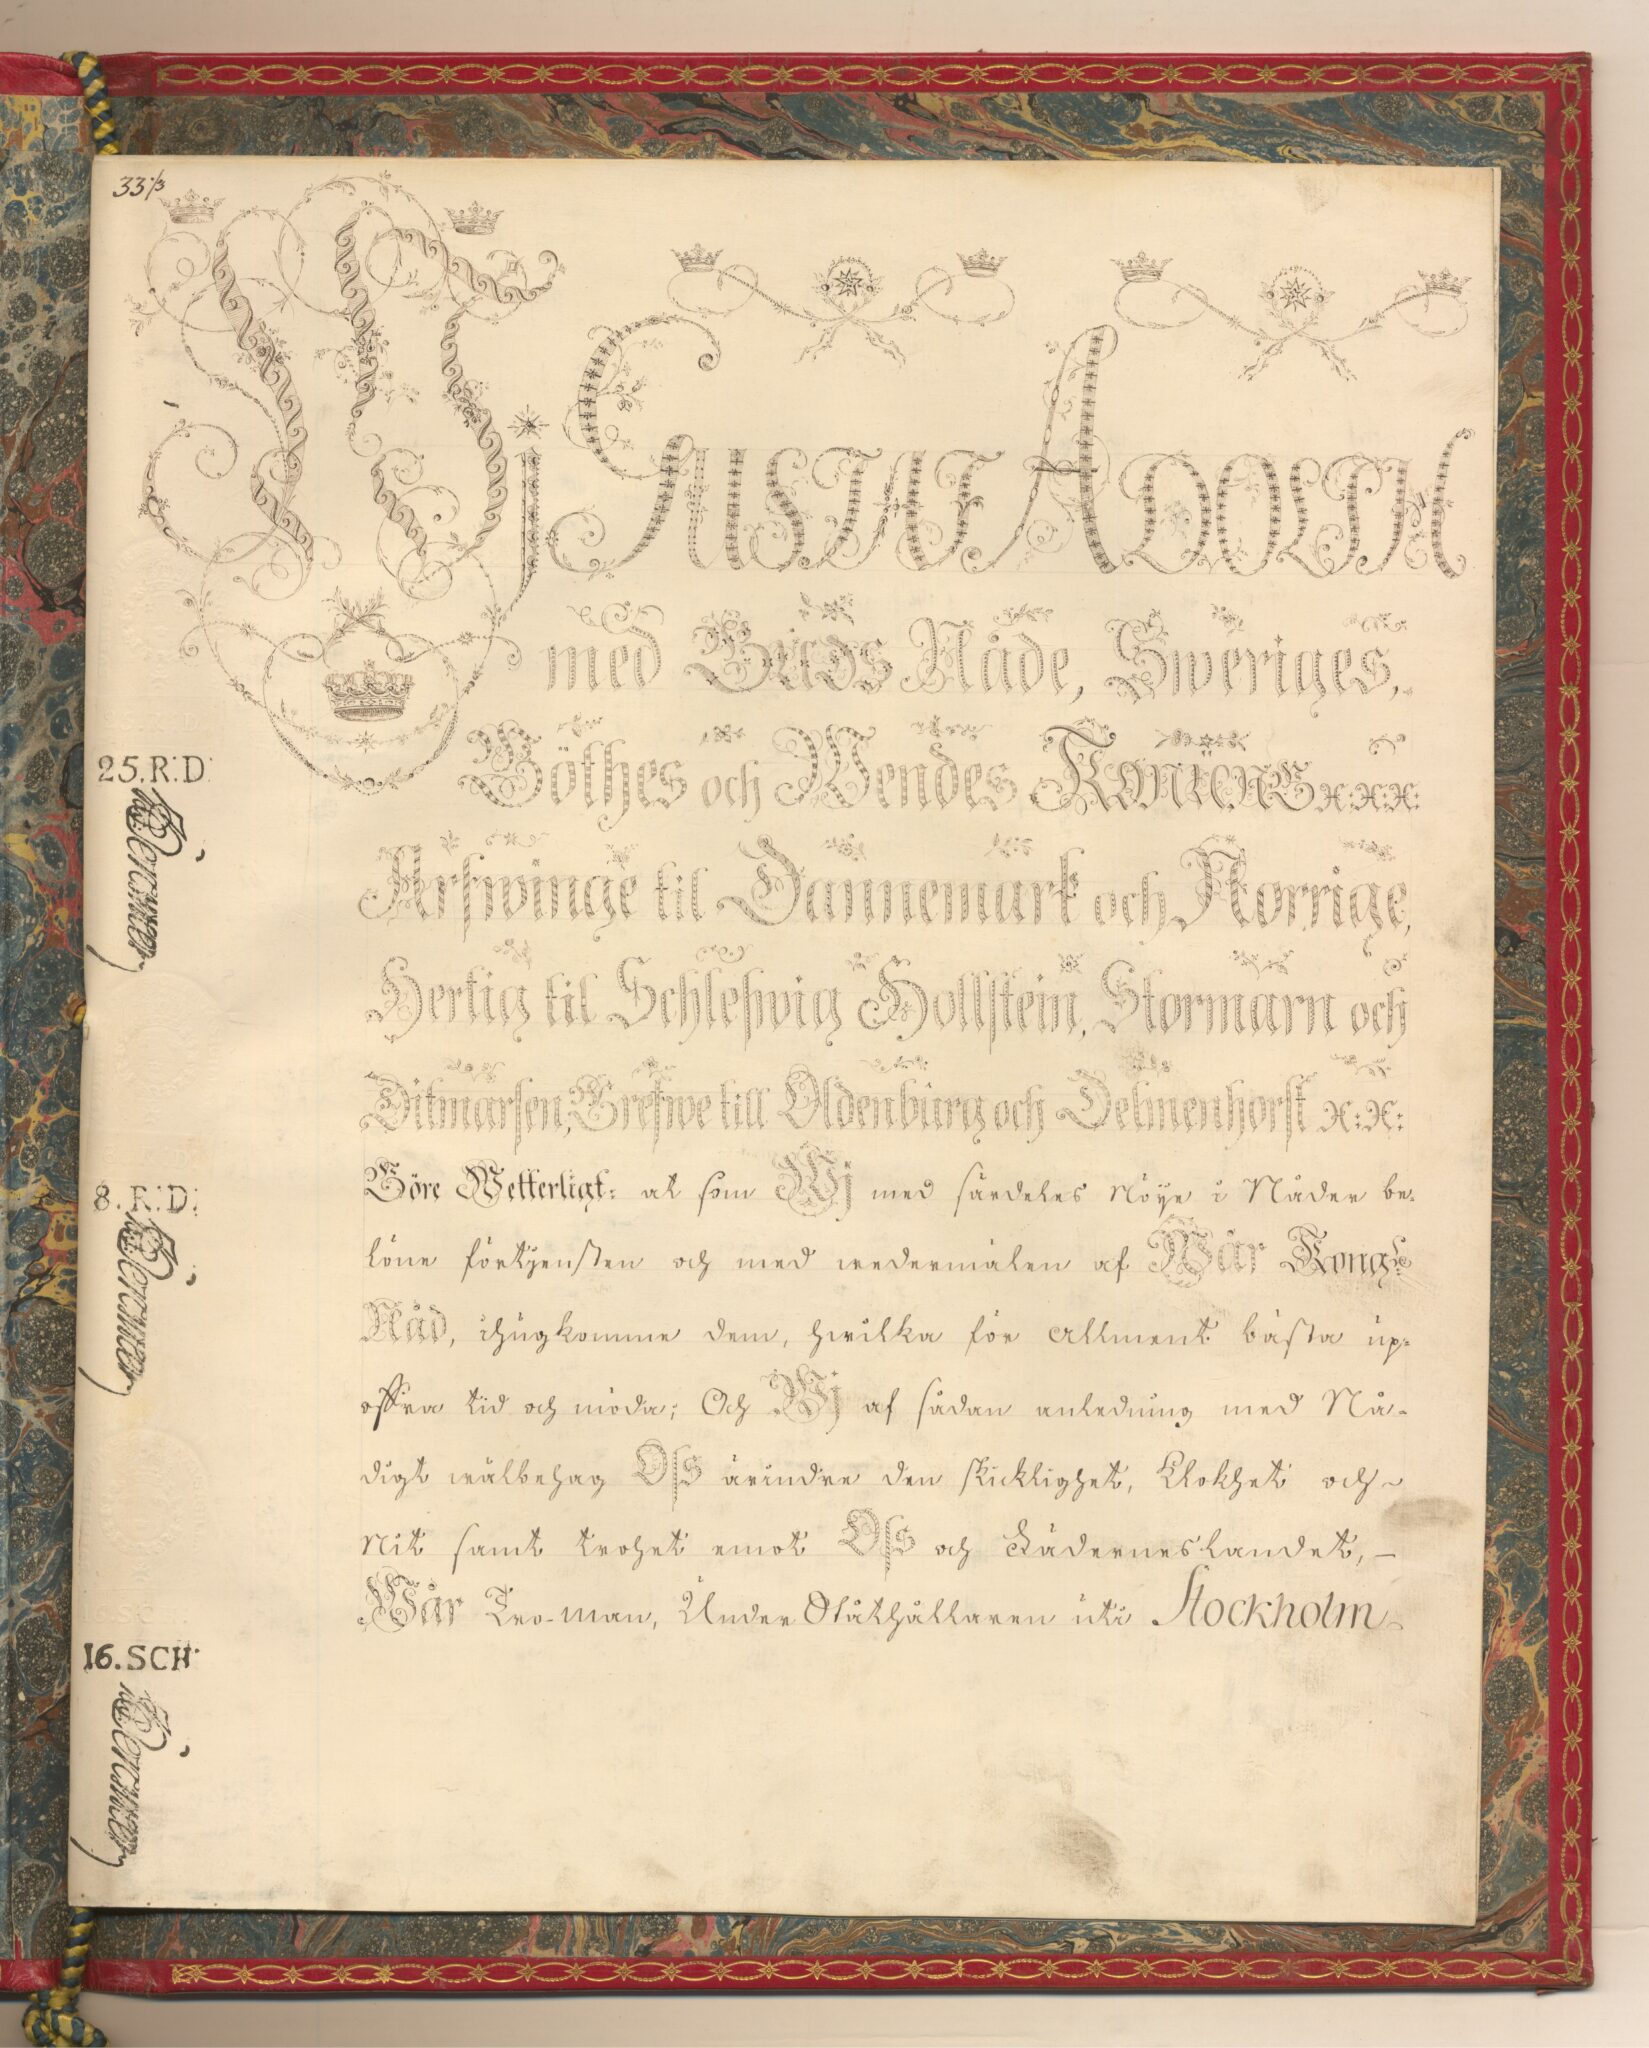 33⅓
Wj GUSTAF ADOLPH
med GUDS Nåde, Sweriges,
Göthes och Wendes KONUNG &:&:&:
Arfwinge til Dannemark och Norrige,
Hertig til Schleßwig Hollstein, Stormarn och
Ditmarsen, Grefwe till Oldenburg och Delmenhorst &:&:
Göre Wetterligt: at som Wj med särdeles Nöye i Nåder be-
löne förtjensten och med wedermälen af Wår Kongl:
Nåd, ihugkomme dem, hwilka för allment bästa up-
offra tid och möda; Och Wj af sådan anledning med Nå-
digt wälbehag Oss ärindre den skicklighet, Klokhet och
Nit samt trohet emot Oss och Fäderneslandet, –
Wår Tro-man, Under Ståthållaren uti Stockholm
25. R:D:
8. R:D:
16. SCH: